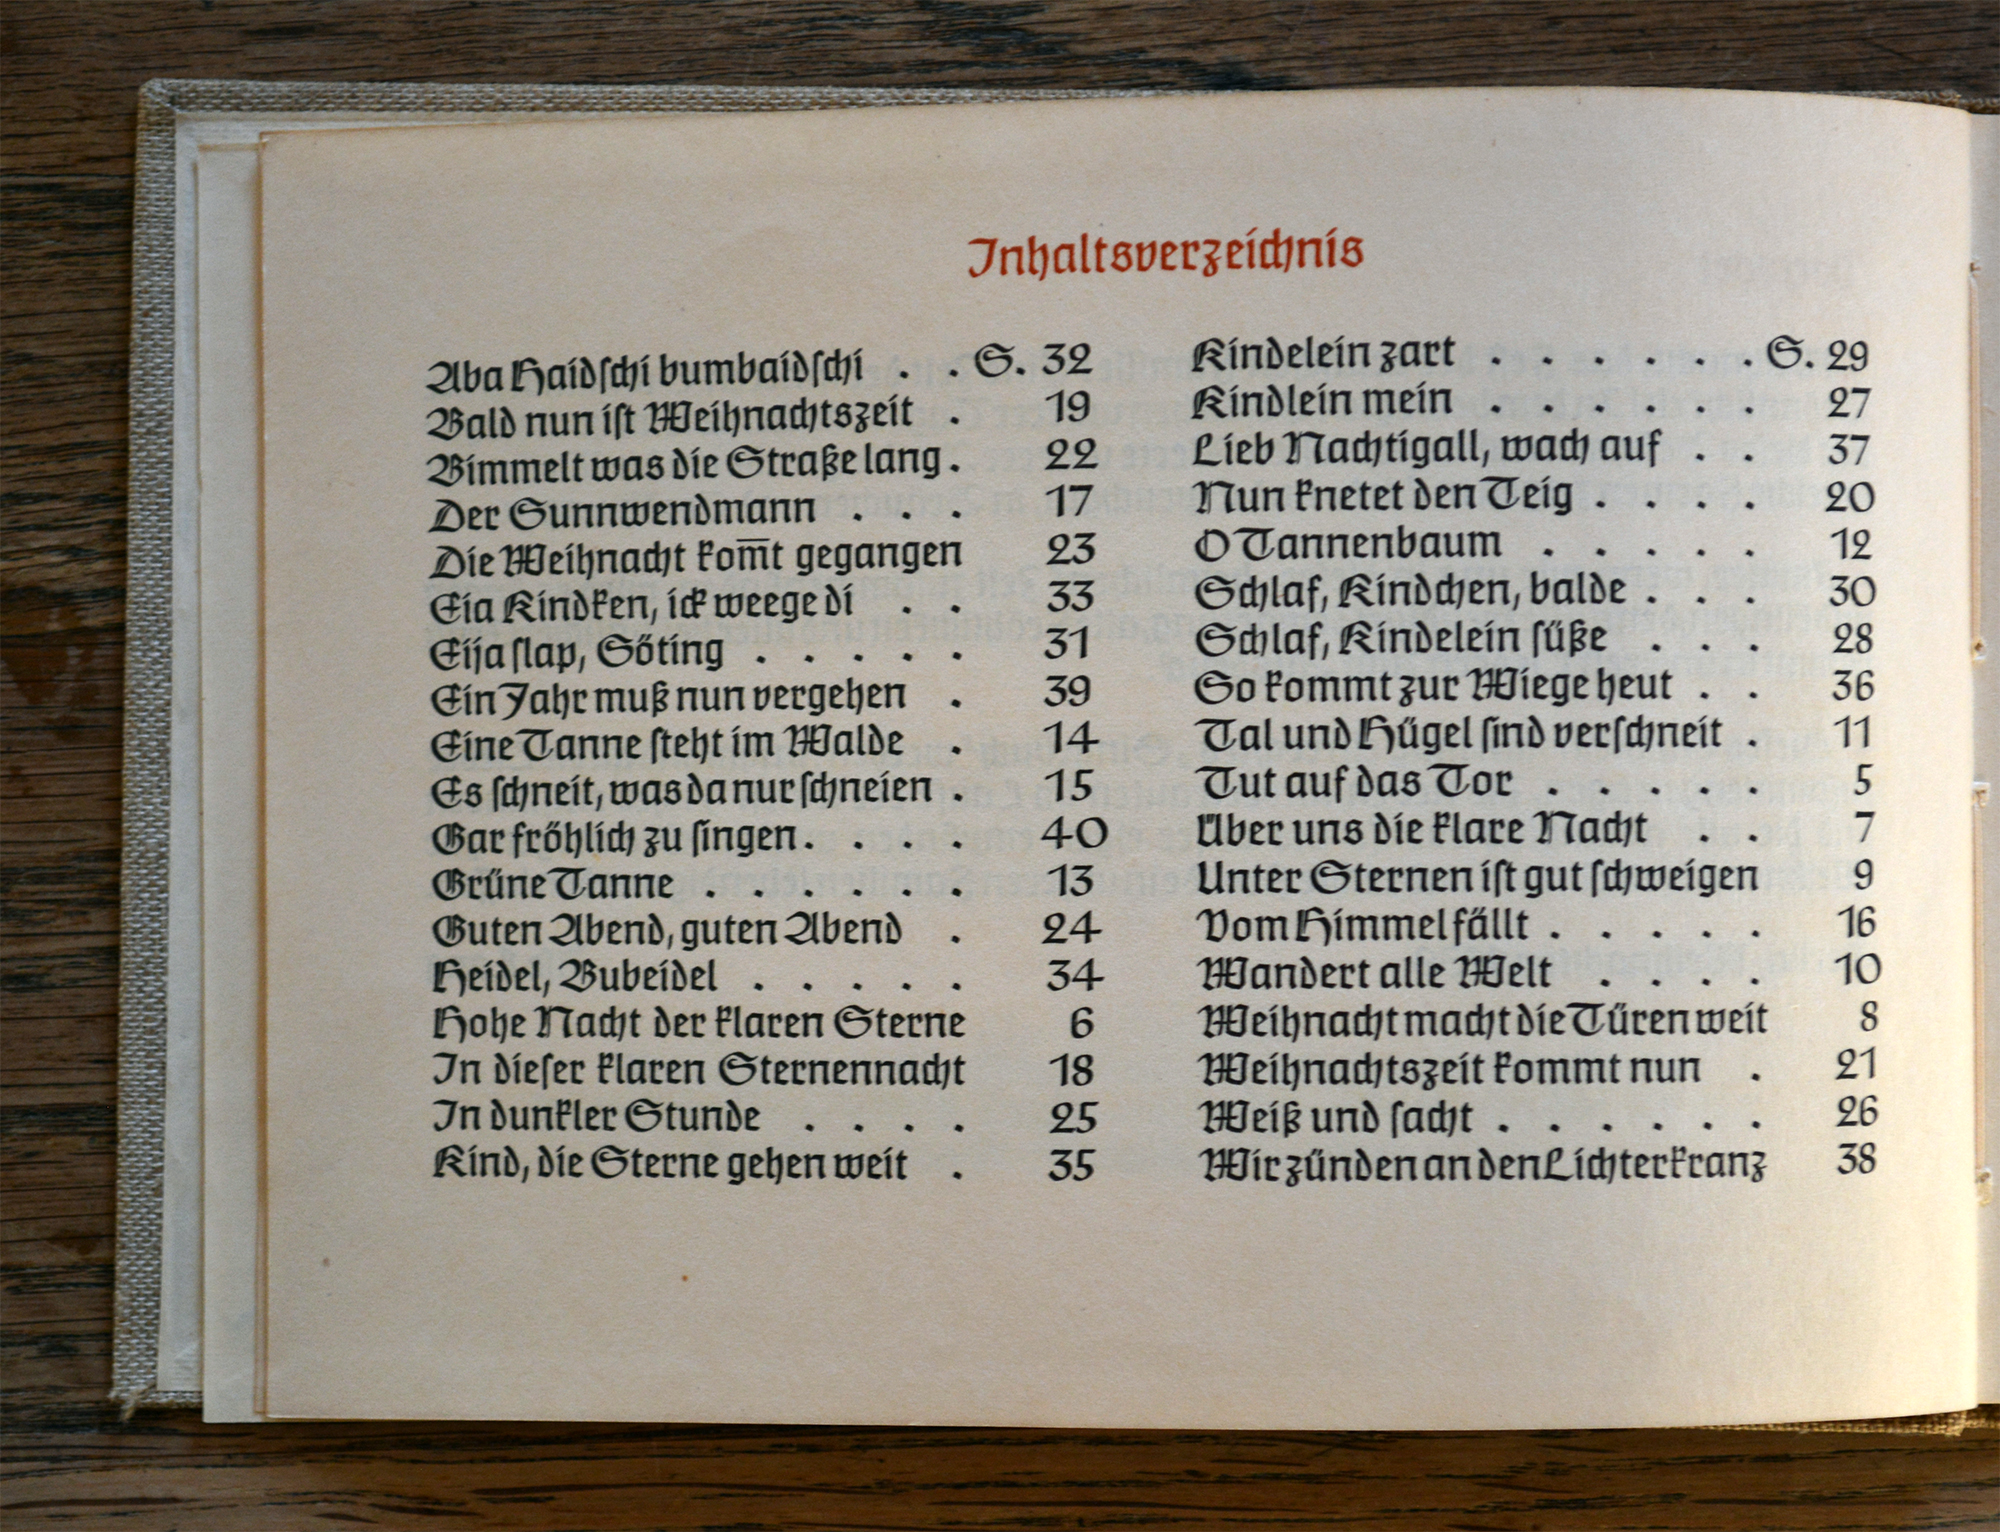 Inhaltsverzeichnis
Aba Haidſchi bumbaidſchi . . S. 32
Bald nun iſt Weihnachtszeit . 19
Bimmelt was die Straße lang . 22
Der Sunnwendmann . . . 17
Die Weihnacht kom̅t gegangen 23
Eia Kindken, ick weege di . . 33
Eija ſlap, Söting . . . . . 31
Ein Jahr muß nun vergehen . 39
Eine Tanne ſteht im Walde . 14
Es ſchneit, was da nur ſchneien . 15
Gar fröhlich zu ſingen . . . . 40
Grüne Tanne . . . . . . 13
Guten Abend, guten Abend . 24
Heidel, Bubeidel . . . . . 34
Hohe Nacht der klaren Sterne 6
In dieſer klaren Sternennacht 18
In dunkler Stunde . . . . 25
Kind, die Sterne gehen weit . 35
Kindelein zart . . . . . . S. 29
Kindlein mein . . . . . . 27
Lieb Nachtigall, wach auf . . 37
Nun knetet den Teig . . . . 20
O Tannenbaum . . . . . 12
Schlaf, Kindchen, balde . . . 30
Schlaf, Kindelein ſüße . . . 28
So kommt zur Wiege heut . . 36
Tal und Hügel ſind verſchneit . 11
Tut auf das Tor . . . . . 5
Über uns die klare Nacht . . 7
Unter Sternen iſt gut ſchweigen 9
Vom Himmel fällt . . . . . 16
Wandert alle Welt . . . . 10
Weihnacht macht die Türen weit 8
Weihnachtszeit kommt nun . 21
Weiß und ſacht . . . . . . 26
Wir zünden an den Lichterkranz 38